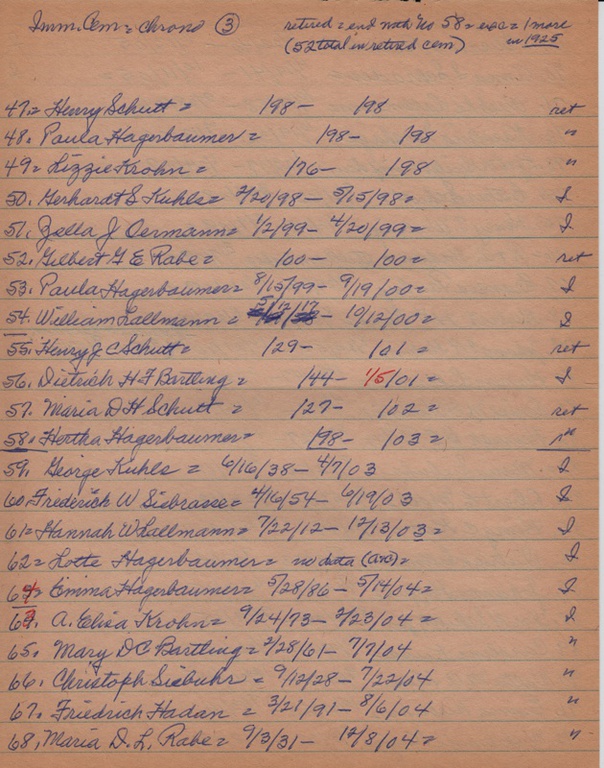 Imm. Cem = chrono ③ retired = end with No 58 = exc = 1 more
(52 total in retired cem) in 1925
47= Henry Schutt = 198- 198 ret
48. Paula Hagerbaumer = 198- 198 "
49= Lizzie Krohn = 176- 198 "
50. Gerhardt S Kuhls = 2/20/98- 5/15/98= I
51. Zella J Oermann= 1/2/99- 4/20/99= I
52. Gilbert G E Rabe = 100- 100= ret
53. Paula Hagerbaumer= 8/15/99- 9/19/00= I
54. William Lallmann = 5/12/17 - 10/12/00= I
55. Henry J C Schutt= 129- 101= ret
56. Dietrich H F Bartling = 144- 1/5/01= I
57. Maria D H Schutt = 127- 102= ret
58. Hertha Hagerbaumer= 198- 103=
59. George Kuhls = 6/16/38- 4/7/03 I
60. Frederich W Siebrasse= 4/16/54- 6/19/03 I
61= Hannah W Lallmann= 7/22/12- 12/13/03= I
62= Lotte Hagerbaumer= no data = I
64= Emma Hagerbaumer= 5/28/86- 5/14/04= I
63. A. Elisa Krohn= 9/24/73- 2/23/04= I
65. Mary D C Bartling= 2/28/61- 7/7/04 "
66. Christoph Siebuhr = 9/12/28- 7/22/04 "
67. Friedrich Hadan = 3/21/91- 8/6/04 "
68, Maria D. L. Rabe= 9/3/31- 12/8/04= "